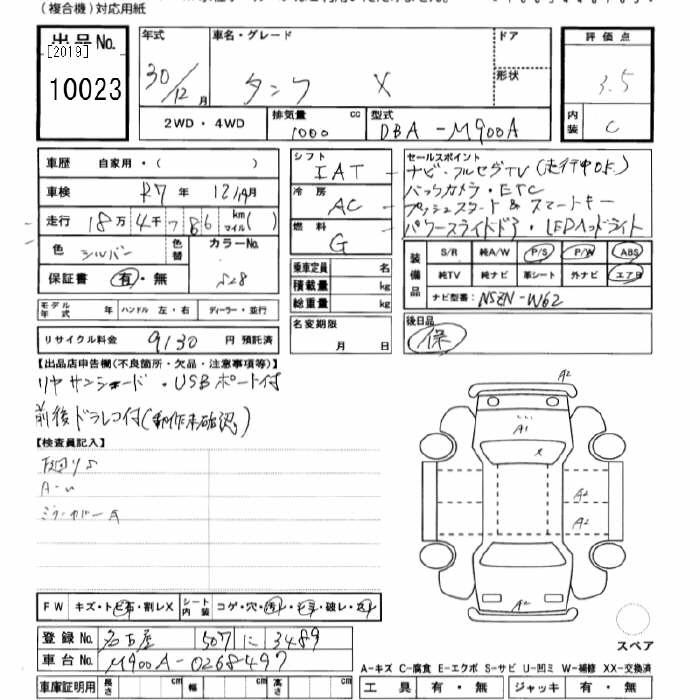 (複合機)対応用紙
出品No. [2019] 10023
年式 30/12月
車名・グレード タンク X
ドア
形状
評価点 3.5
内装 C
2WD・4WD
排気量 cc 1000
型式 DBA-M900A
車歴 自家用・( )
車検 R7年 12月
走行 18万4千786 km マイル( )
色 シルバー 色替
カラーNo. S28
保証書 有・無
モデル年式 年 ハンドル 左・右 ディーラー・並行
リサイクル料金 9130 円 預託済
シフト IAT
冷房 AC
燃料 G
乗車定員 名
積載量 kg
総重量 kg
名変期限 月 日
セールスポイント
ナビ・フルセグTV(走行中OK)
バックカメラ・ETC
プッシュスタート&スマートキー
パワースライドドア・LEDヘッドライト
装備品 S/R 純A/W P/S P/W ABS
純TV 純ナビ 革シート 外ナビ エアB
ナビ型番: NSZN-W62
後日品
保
【出品店申告欄(不良箇所・欠品・注意事項等)】
リヤサンシェード・USBポート付
前後ドラレコ付(動作未確認)
【検査員記入】
下回りS
A-U
ミラーカバーA
A2
A1
X
A2
A2
A2
FW キズ・トビ石・割レX
シート内装 コゲ・穴・汚レ・シミ・破レ・スレ
登録No. 名古屋 507 に 3489
車台No. M900A-0268497
車庫証明用 長さ cm 幅 cm 高さ cm
スペア
A-キズ C-腐食 E-エクボ S-サビ U-凹ミ W-補修 XX-交換済
工具 有・無 ジャッキ 有・無